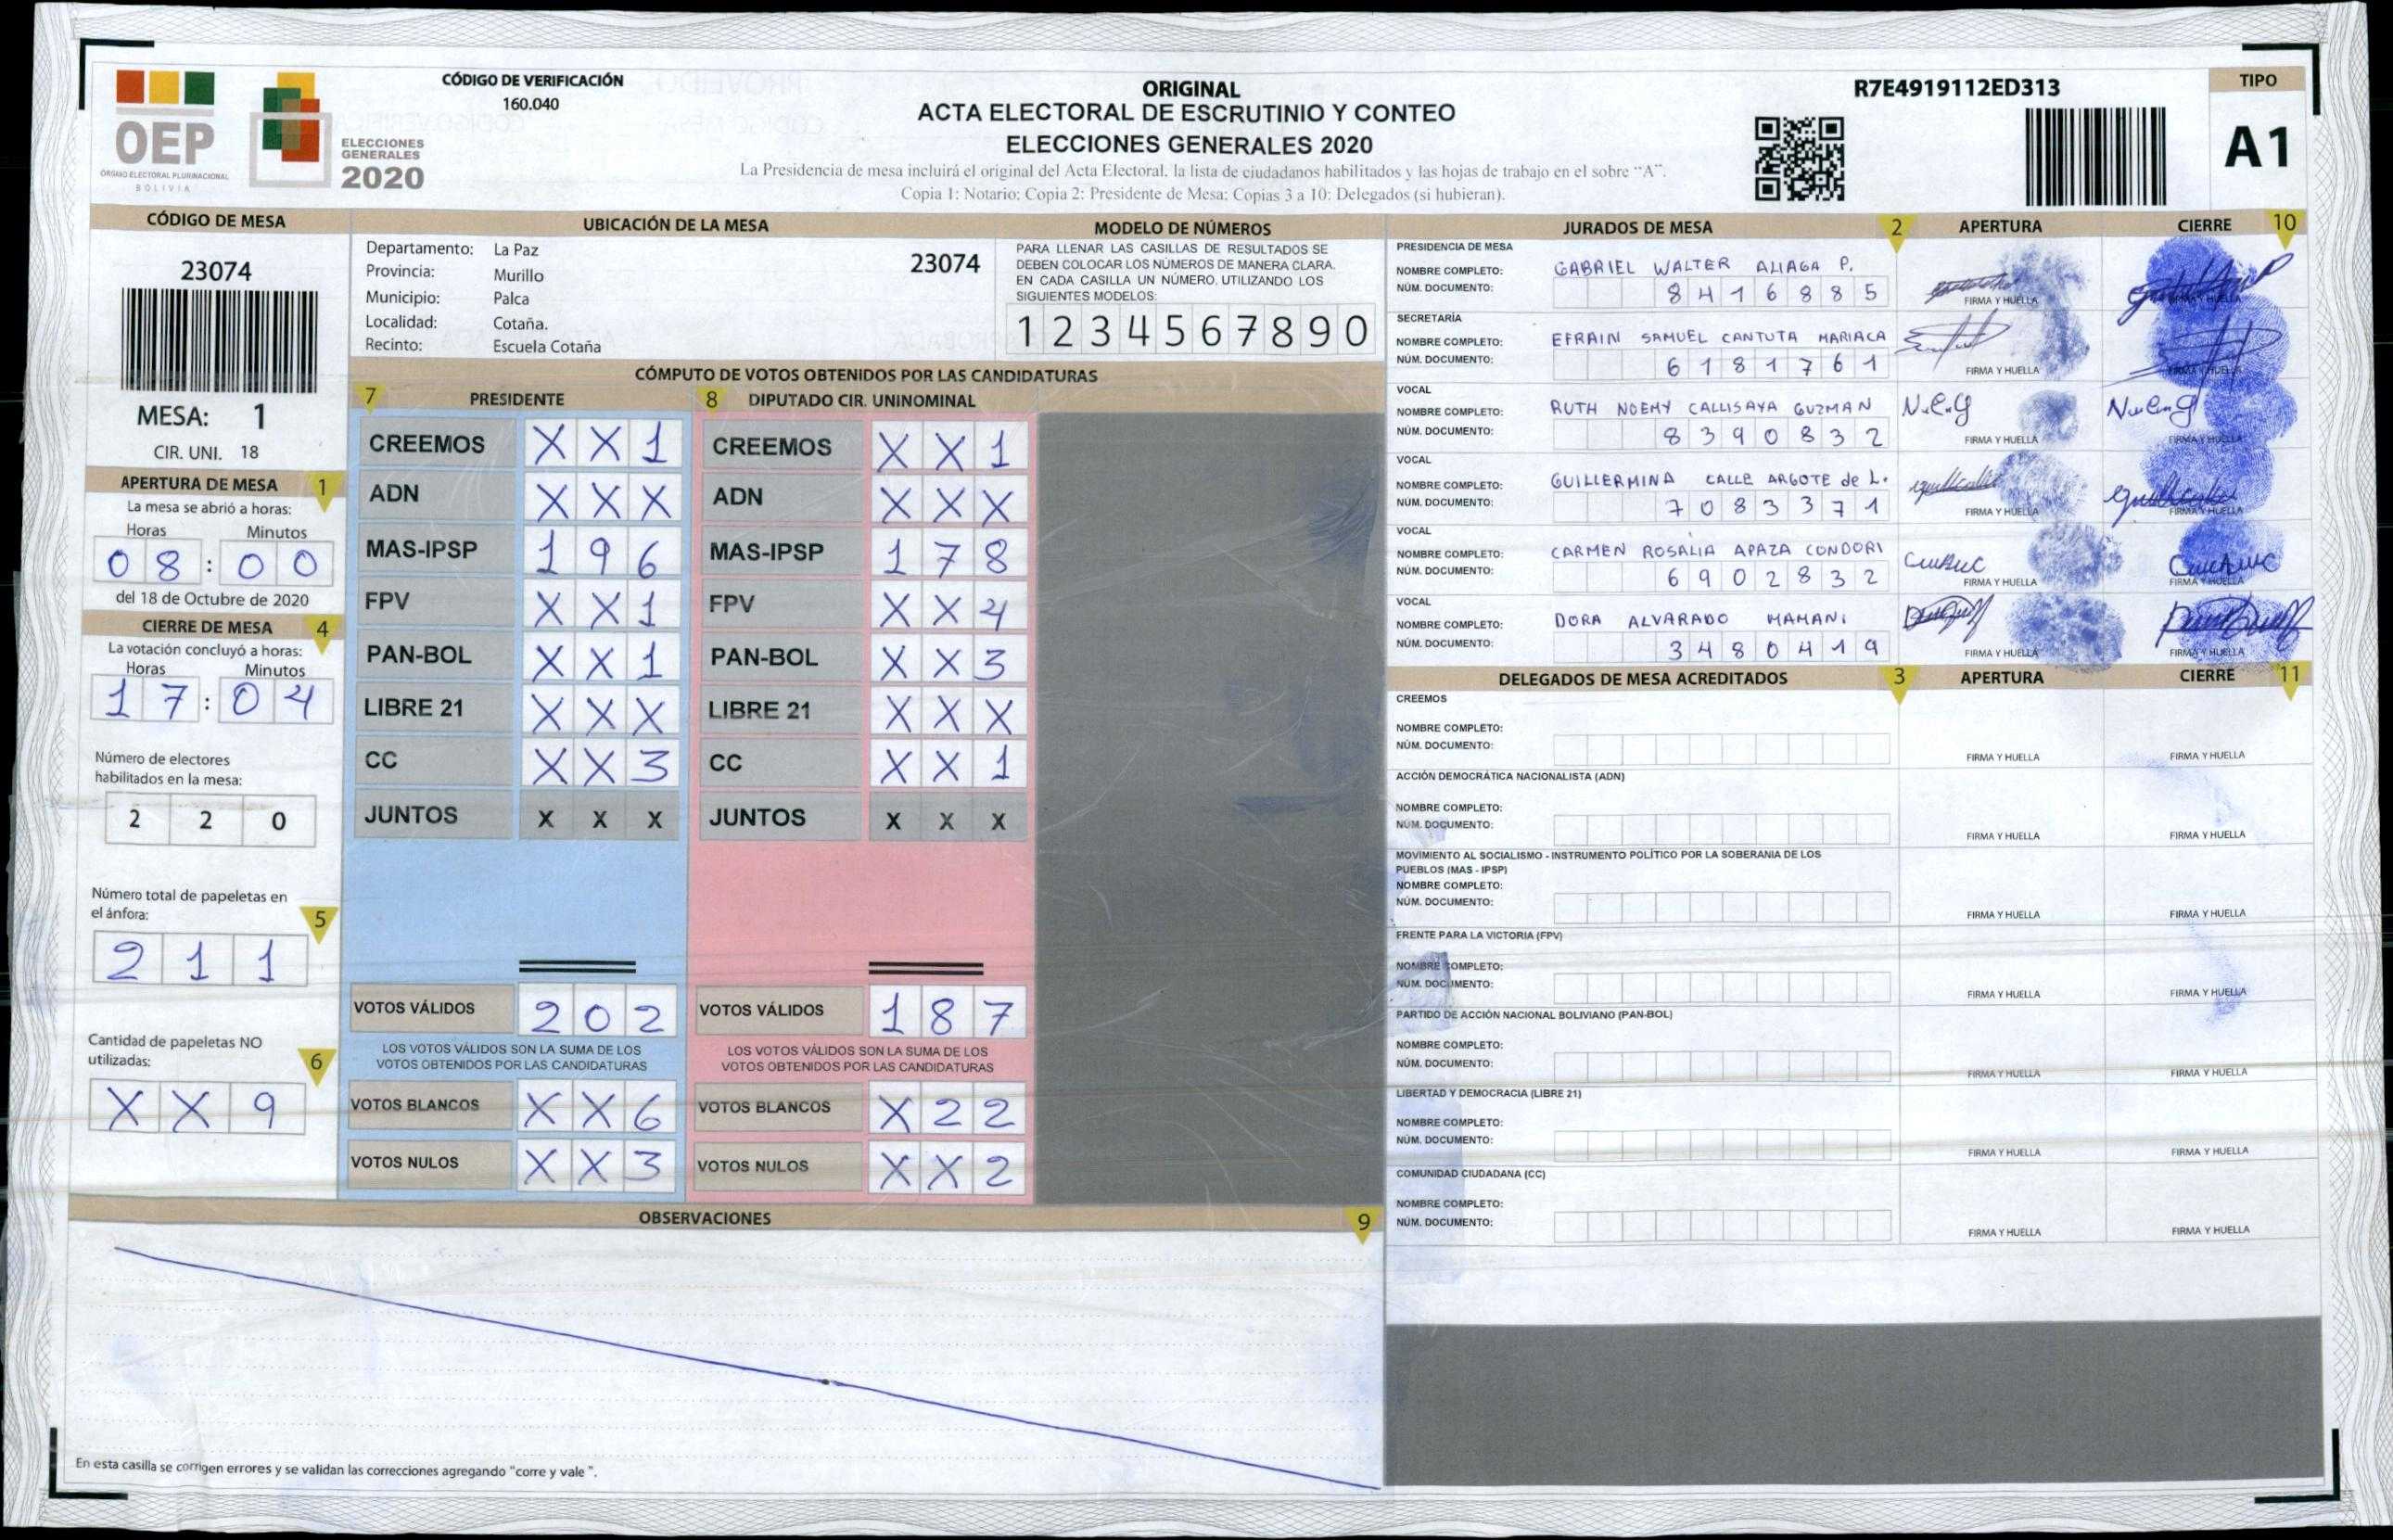 OEP
ÓRGANO ELECTORAL PLURINACIONAL
BOLIVIA
ELECCIONES
GENERALES
2020
CÓDIGO DE VERIFICACIÓN
160.040
ORIGINAL
ACTA ELECTORAL DE ESCRUTINIO Y CONTEO
ELECCIONES GENERALES 2020
La Presidencia de mesa incluirá el original del Acta Electoral, la lista de ciudadanos habilitados y las hojas de trabajo en el sobre "A".
Copia 1: Notario; Copia 2: Presidente de Mesa; Copias 3 a 10: Delegados (si hubieran).
R7E4919112ED313
TIPO
A1
CÓDIGO DE MESA
23074
MESA: 1
CIR. UNI. 18
APERTURA DE MESA 1
La mesa se abrió a horas:
Horas Minutos
0 8 : 0 0
del 18 de Octubre de 2020
CIERRE DE MESA 4
La votación concluyó a horas:
Horas Minutos
1 7 : 0 4
Número de electores
habilitados en la mesa:
2 2 0
Número total de papeletas en
el ánfora: 5
2 1 1
Cantidad de papeletas NO
utilizadas: 6
X X 9
UBICACIÓN DE LA MESA
Departamento: La Paz
Provincia: Murillo
Municipio: Palca
Localidad: Cotaña.
Recinto: Escuela Cotaña
23074
MODELO DE NÚMEROS
PARA LLENAR LAS CASILLAS DE RESULTADOS SE
DEBEN COLOCAR LOS NÚMEROS DE MANERA CLARA.
EN CADA CASILLA UN NÚMERO. UTILIZANDO LOS
SIGUIENTES MODELOS:
1 2 3 4 5 6 7 8 9 0
CÓMPUTO DE VOTOS OBTENIDOS POR LAS CANDIDATURAS
7 PRESIDENTE
CREEMOS X X 1
ADN X X X
MAS-IPSP 1 9 6
FPV X X 1
PAN-BOL X X 1
LIBRE 21 X X X
CC X X 3
JUNTOS X X X
VOTOS VÁLIDOS 2 0 2
LOS VOTOS VÁLIDOS SON LA SUMA DE LOS
VOTOS OBTENIDOS POR LAS CANDIDATURAS
VOTOS BLANCOS X X 6
VOTOS NULOS X X 3
8 DIPUTADO CIR. UNINOMINAL
CREEMOS X X 1
ADN X X X
MAS-IPSP 1 7 8
FPV X X 4
PAN-BOL X X 3
LIBRE 21 X X X
CC X X 1
JUNTOS X X X
VOTOS VÁLIDOS 1 8 7
LOS VOTOS VÁLIDOS SON LA SUMA DE LOS
VOTOS OBTENIDOS POR LAS CANDIDATURAS
VOTOS BLANCOS X 2 2
VOTOS NULOS X X 2
OBSERVACIONES 9
En esta casilla se corrigen errores y se validan las correcciones agregando "corre y vale ".
JURADOS DE MESA 2 APERTURA CIERRE 10
PRESIDENCIA DE MESA
NOMBRE COMPLETO: GABRIEL WALTER ALIAGA P.
NÚM. DOCUMENTO: 8 4 1 6 8 8 5
FIRMA Y HUELLA FIRMA Y HUELLA
SECRETARÍA
NOMBRE COMPLETO: EFRAIN SAMUEL CANTUTA MARIACA
NÚM. DOCUMENTO: 6 1 8 1 7 6 1
FIRMA Y HUELLA FIRMA Y HUELLA
VOCAL
NOMBRE COMPLETO: RUTH NOEMY CALLISAYA GUZMAN
NÚM. DOCUMENTO: 8 3 9 0 8 3 2
FIRMA Y HUELLA FIRMA Y HUELLA
VOCAL
NOMBRE COMPLETO: GUILLERMINA CALLE ARGOTE de L.
NÚM. DOCUMENTO: 7 0 8 3 3 7 1
FIRMA Y HUELLA FIRMA Y HUELLA
VOCAL
NOMBRE COMPLETO: CARMEN ROSALIA APAZA CONDORI
NÚM. DOCUMENTO: 6 9 0 2 8 3 2
FIRMA Y HUELLA FIRMA Y HUELLA
VOCAL
NOMBRE COMPLETO: DORA ALVARADO MAMANI
NÚM. DOCUMENTO: 3 4 8 0 4 1 9
FIRMA Y HUELLA FIRMA Y HUELLA
DELEGADOS DE MESA ACREDITADOS 3 APERTURA CIERRE 11
CREEMOS
NOMBRE COMPLETO:
NÚM. DOCUMENTO:
FIRMA Y HUELLA FIRMA Y HUELLA
ACCIÓN DEMOCRÁTICA NACIONALISTA (ADN)
NOMBRE COMPLETO:
NÚM. DOCUMENTO:
FIRMA Y HUELLA FIRMA Y HUELLA
MOVIMIENTO AL SOCIALISMO - INSTRUMENTO POLÍTICO POR LA SOBERANIA DE LOS
PUEBLOS (MAS - IPSP)
NOMBRE COMPLETO:
NÚM. DOCUMENTO:
FIRMA Y HUELLA FIRMA Y HUELLA
FRENTE PARA LA VICTORIA (FPV)
NOMBRE COMPLETO:
NÚM. DOCUMENTO:
FIRMA Y HUELLA FIRMA Y HUELLA
PARTIDO DE ACCIÓN NACIONAL BOLIVIANO (PAN-BOL)
NOMBRE COMPLETO:
NÚM. DOCUMENTO:
FIRMA Y HUELLA FIRMA Y HUELLA
LIBERTAD Y DEMOCRACIA (LIBRE 21)
NOMBRE COMPLETO:
NÚM. DOCUMENTO:
FIRMA Y HUELLA FIRMA Y HUELLA
COMUNIDAD CIUDADANA (CC)
NOMBRE COMPLETO:
NÚM. DOCUMENTO:
FIRMA Y HUELLA FIRMA Y HUELLA